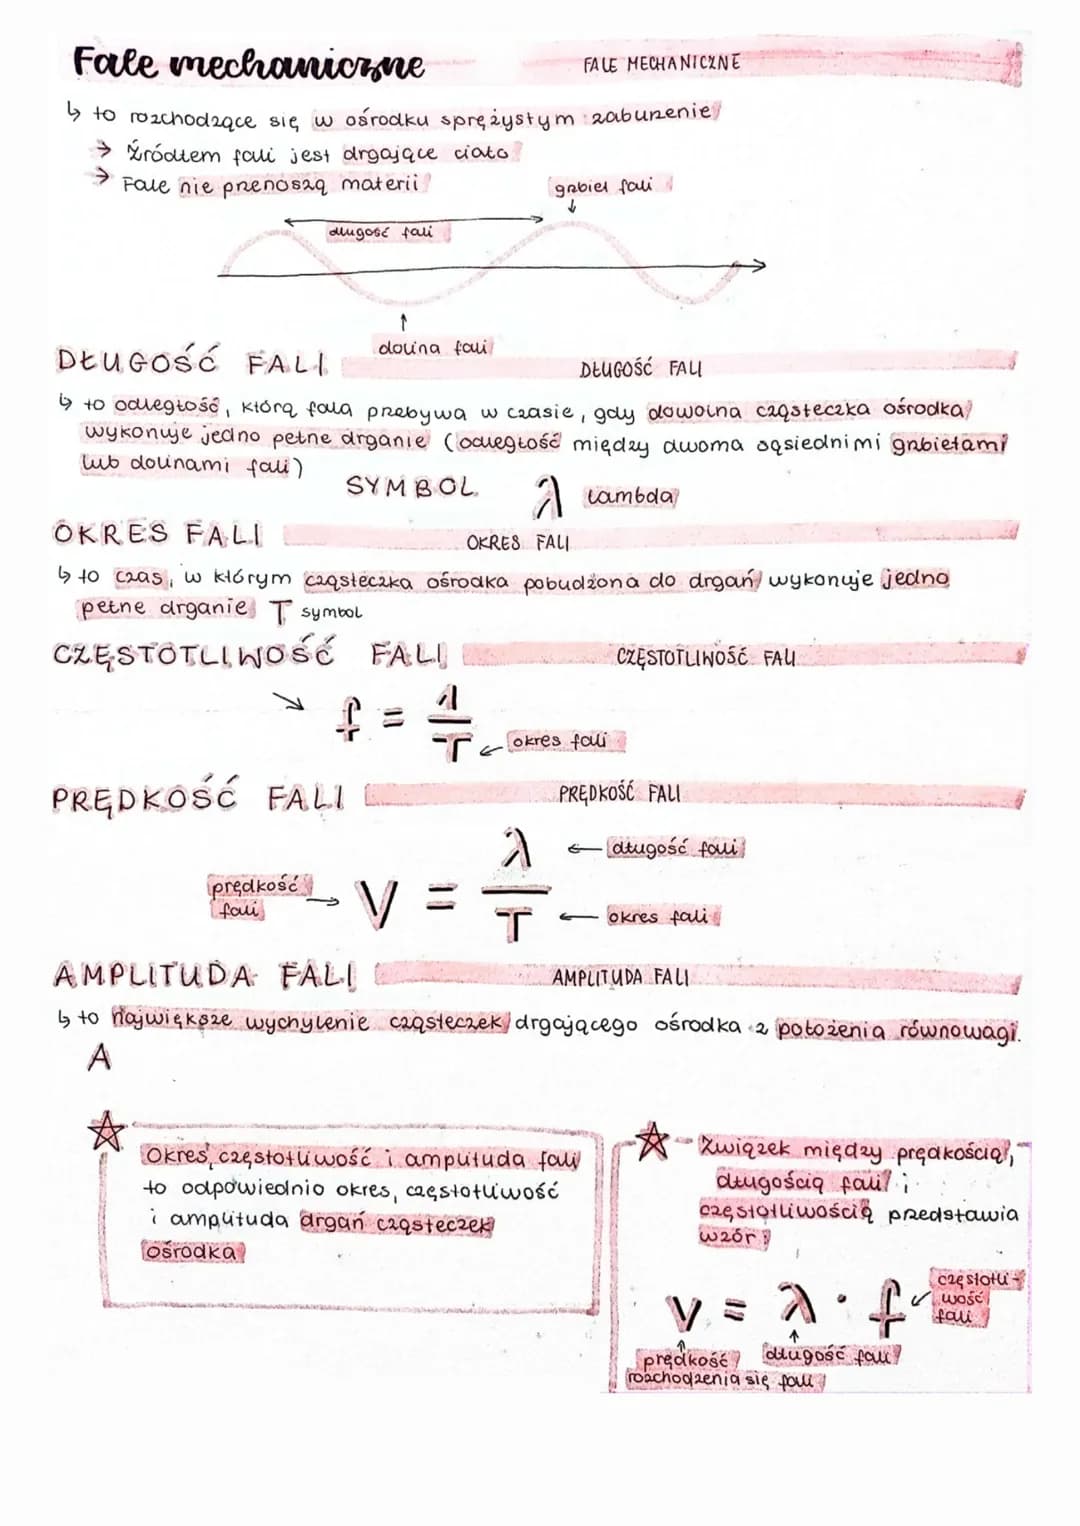 Fale mechaniczne
FALE MECHANICZNE
↳ to rozchodzące się w ośrodku sprężystym zaburzenie
→ Źródłem fali jest drgające ciało
→ Fale nie przenoszą materii
grzbiet fali
długość fali
dolina fali
DŁUGOŚĆ FALI
DŁUGOŚĆ FALI
↳ to odległość, którą fala przebywa w czasie, gdy dowolna cząsteczka ośrodka
wykonuje jedno pełne drganie (odległość między dwoma sąsiednimi grzbietami
lub dolinami fali)
SYMBOL λ lambda
OKRES FALI
OKRES FALI
↳ to czas, w którym cząsteczka ośrodka pobudzona do drgań wykonuje jedno
pełne drganie T symbol
CZĘSTOTLIWOŚĆ FALI
CZĘSTOTLIWOŚĆ FALI
f = 1
T ← okres fali
PRĘDKOŚĆ FALI
PRĘDKOŚĆ FALI
λ ← długość fali
prędkość
fali → V =
T ← okres fali
AMPLITUDA FALI
AMPLITUDA FALI
↳ to największe wychylenie cząsteczek drgającego ośrodka z położenia równowagi.
A
Okres, częstotliwość i amplituda fali
to odpowiednio okres, częstotliwość
i amplituda drgań cząsteczek
ośrodka
Związek między prędkością,
długością fali i
częstotliwością przedstawia
wzór:
v = λ · f
częstotli-
wość
fali
długość fali
prędkość
rozchodzenia się fali